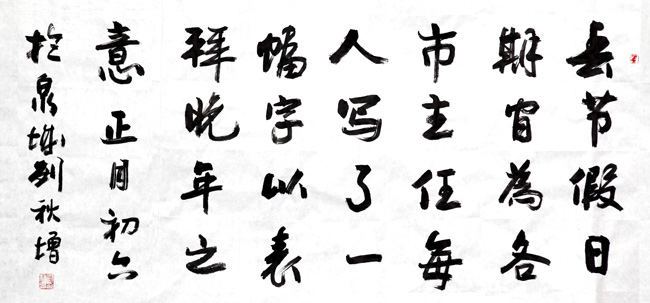 春节假日
期间为各
市主任每
人写了一
幅字以表
拜晚年之
意 正月初六
于泉城 刘秋增